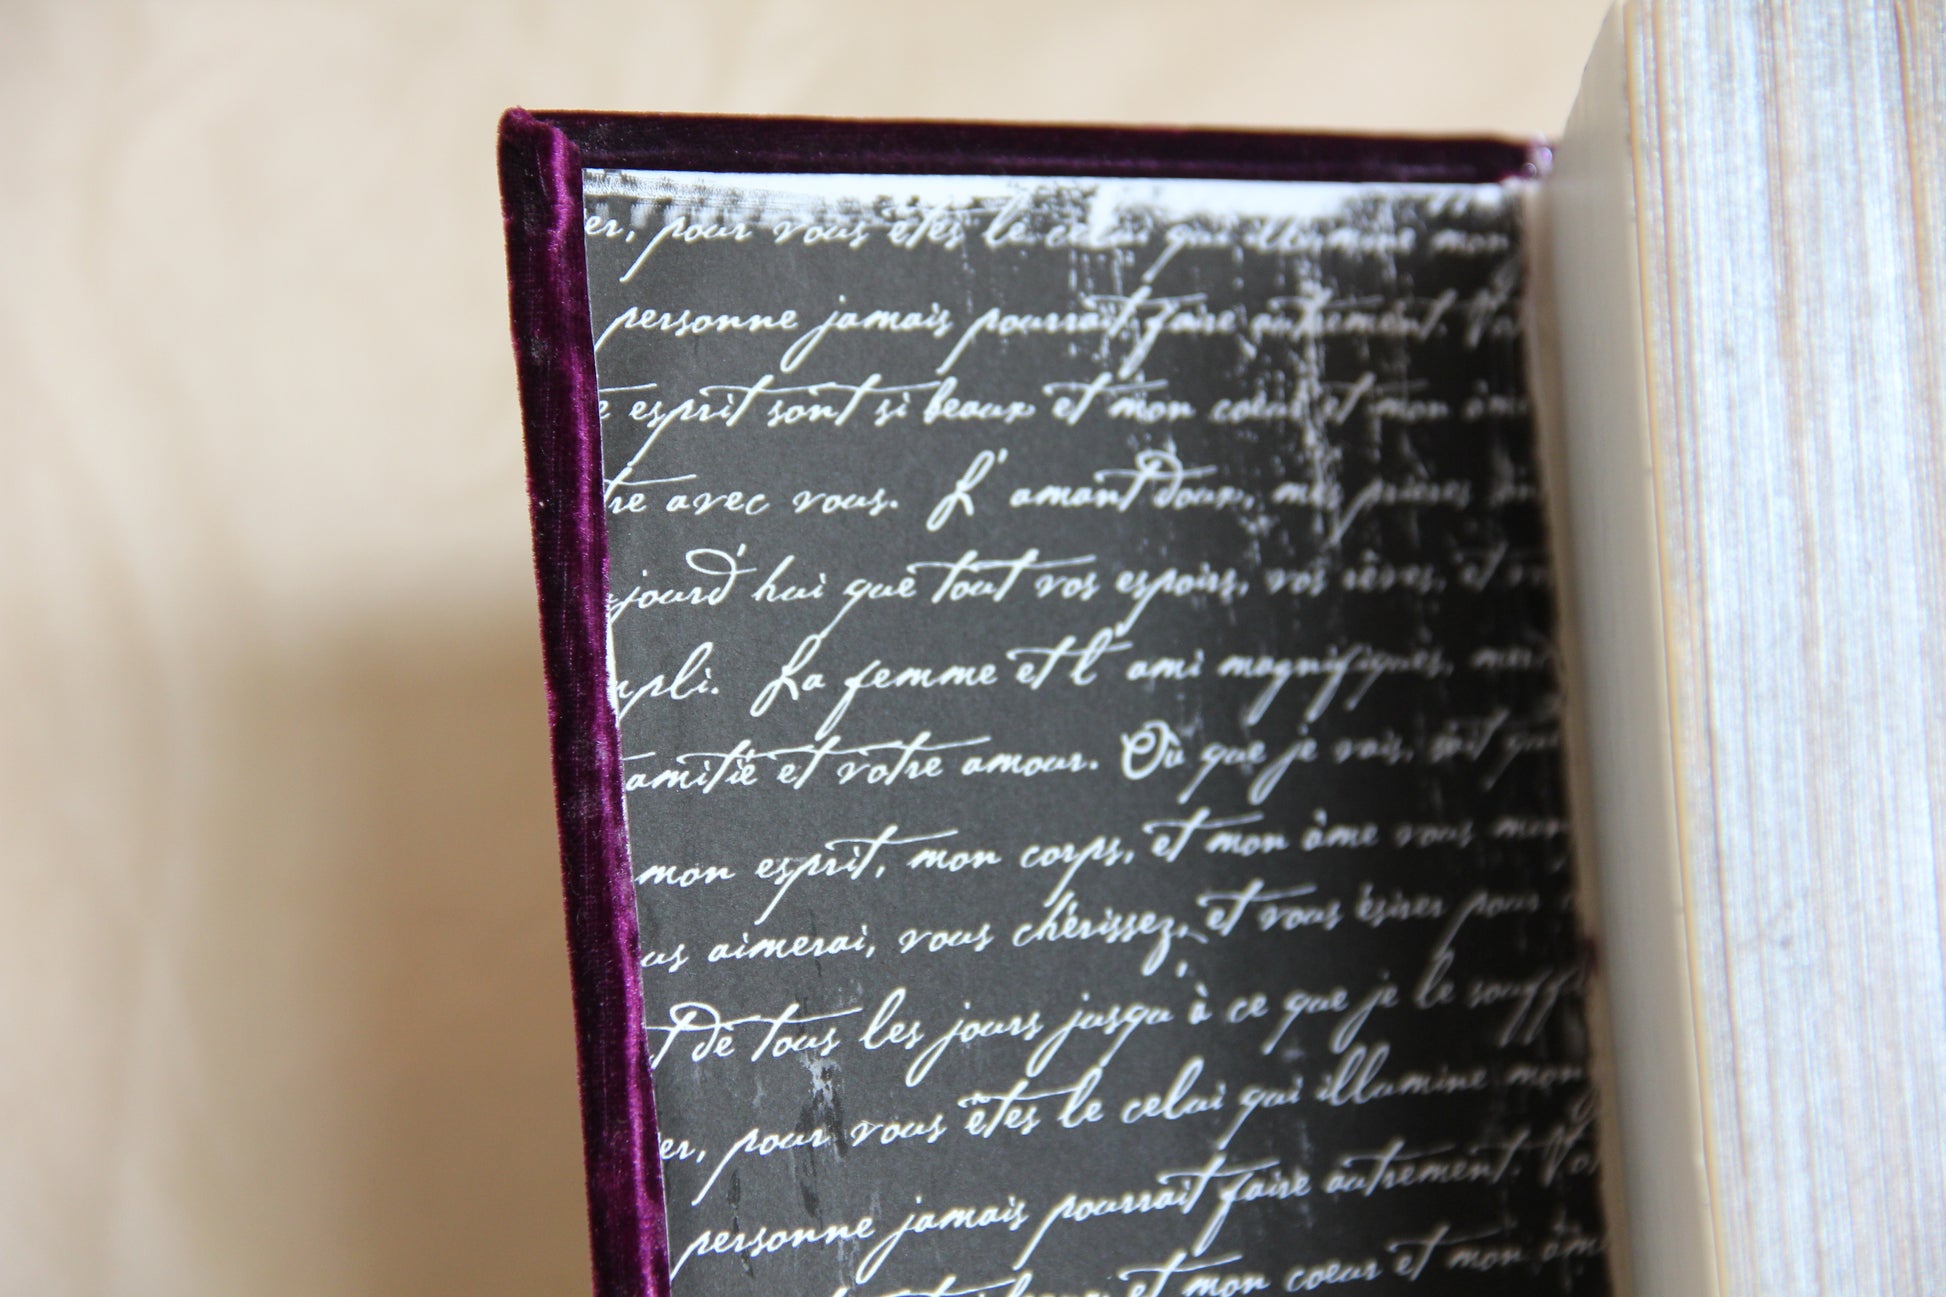 er, pour vous êtes le celui qui illumine mon
personne jamais pourrait faire autrement.
esprit sont si beaux et mon coeur et mon
avec vous. L' amant doux, mes prières
jourd' hui que tout vos espoirs, vos rêves, et
pli. La femme et l' ami magnifiques,
amitié et votre amour. Où que je vais, soit que
mon esprit, mon corps, et mon âme vous
us aimerai, vous chérissez, et vous ésirer pour
t de tous les jours jusqu' à ce que je le
er, pour vous êtes le celui qui illumine mon
personne jamais pourrait faire autrement.
et mon coeur et mon